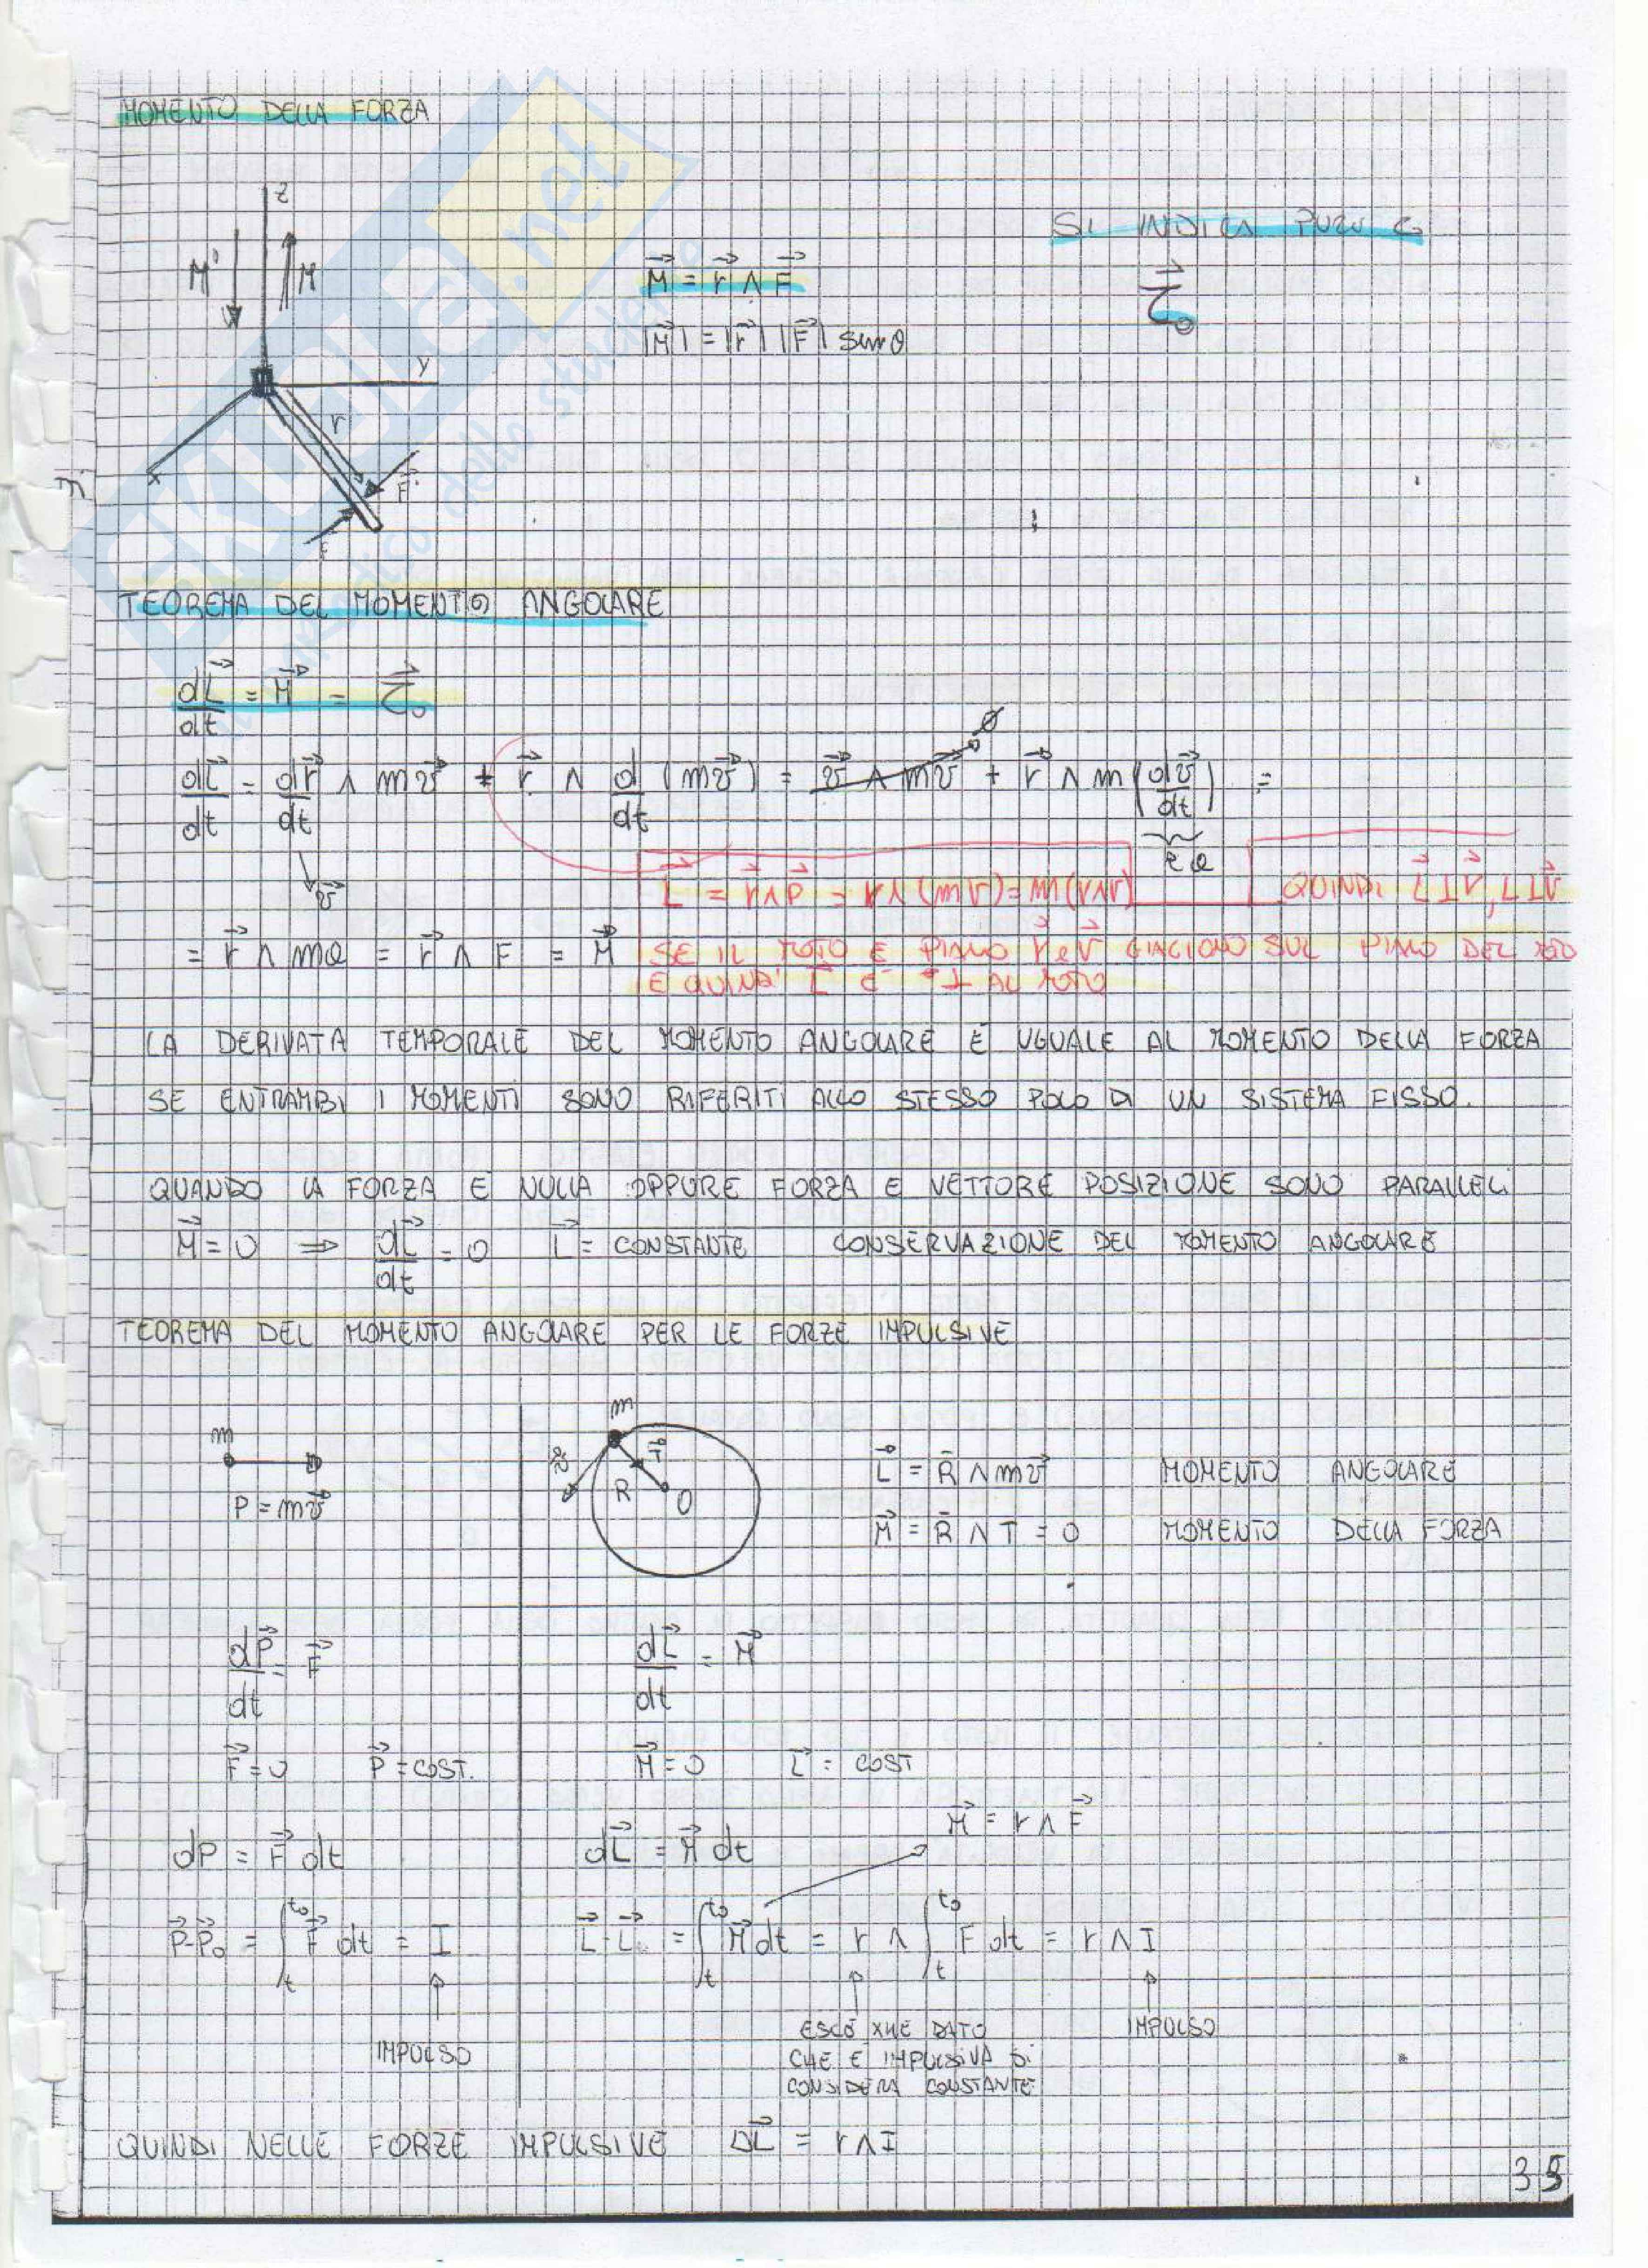 MOMENTO DELLA FORZA
z
M' M
SI INDICA PURE
M⃗ = r⃗ ∧ F⃗
τ⃗₀
|M⃗| = |r⃗| |F⃗| sen θ
y
r
x
F'
F
SKUOLA.net
TEOREMA DEL MOMENTO ANGOLARE
dL⃗/dt = M⃗ = τ⃗₀
dL⃗/dt = dr⃗/dt ∧ mv⃗ + r⃗ ∧ d/dt (mv⃗) = v⃗ ∧ mv⃗ + r⃗ ∧ m(dv⃗/dt) =
0
v⃗
è a
L⃗ = r⃗∧p⃗ = r∧(mv) = m(r∧v)
QUINDI L⃗ ⊥ r⃗, L ⊥ v⃗
= r⃗ ∧ ma = r⃗ ∧ F = M⃗
SE IL MOTO È PIANO r⃗ e v⃗ GIACIONO SUL PIANO DEL MOTO
E QUINDI L È ⊥ AL MOTO
LA DERIVATA TEMPORALE DEL MOMENTO ANGOLARE È UGUALE AL MOMENTO DELLA FORZA
SE ENTRAMBI I MOMENTI SONO RIFERITI ALLO STESSO POLO DI UN SISTEMA FISSO.
QUANDO LA FORZA E NULLA OPPURE FORZA E VETTORE POSIZIONE SONO PARALLELI
M⃗ = 0 ⇒ dL⃗/dt = 0 L⃗ = CONSTANTE CONSERVAZIONE DEL MOMENTO ANGOLARE
TEOREMA DEL MOMENTO ANGOLARE PER LE FORZE IMPULSIVE
m
m
v⃗ T⃗
R O
P = mv⃗
L⃗ = R̄ ∧ mv⃗ MOMENTO ANGOLARE
M⃗ = R̄ ∧ T = 0 MOMENTO DELLA FORZA
dP⃗/dt = F⃗
dL⃗/dt = M⃗
F⃗ = 0 P⃗ = COST.
M⃗ = 0 L⃗ = COST
M⃗ = r ∧ F⃗
dP = F⃗ dt
dL⃗ = M⃗ dt
P⃗-P⃗₀ = ∫ₜ^t₀ F⃗ dt = I
L⃗-L⃗₀ = ∫ₜ^t₀ M⃗ dt = r ∧ ∫ₜ^t₀ F dt = r ∧ I
IMPULSO
ESCE XHE DATO
CHE E IMPULSIVA SI
CONSIDERA CONSTANTE
IMPULSO
QUINDI NELLE FORZE IMPULSIVE ΔL⃗ = r∧I
35